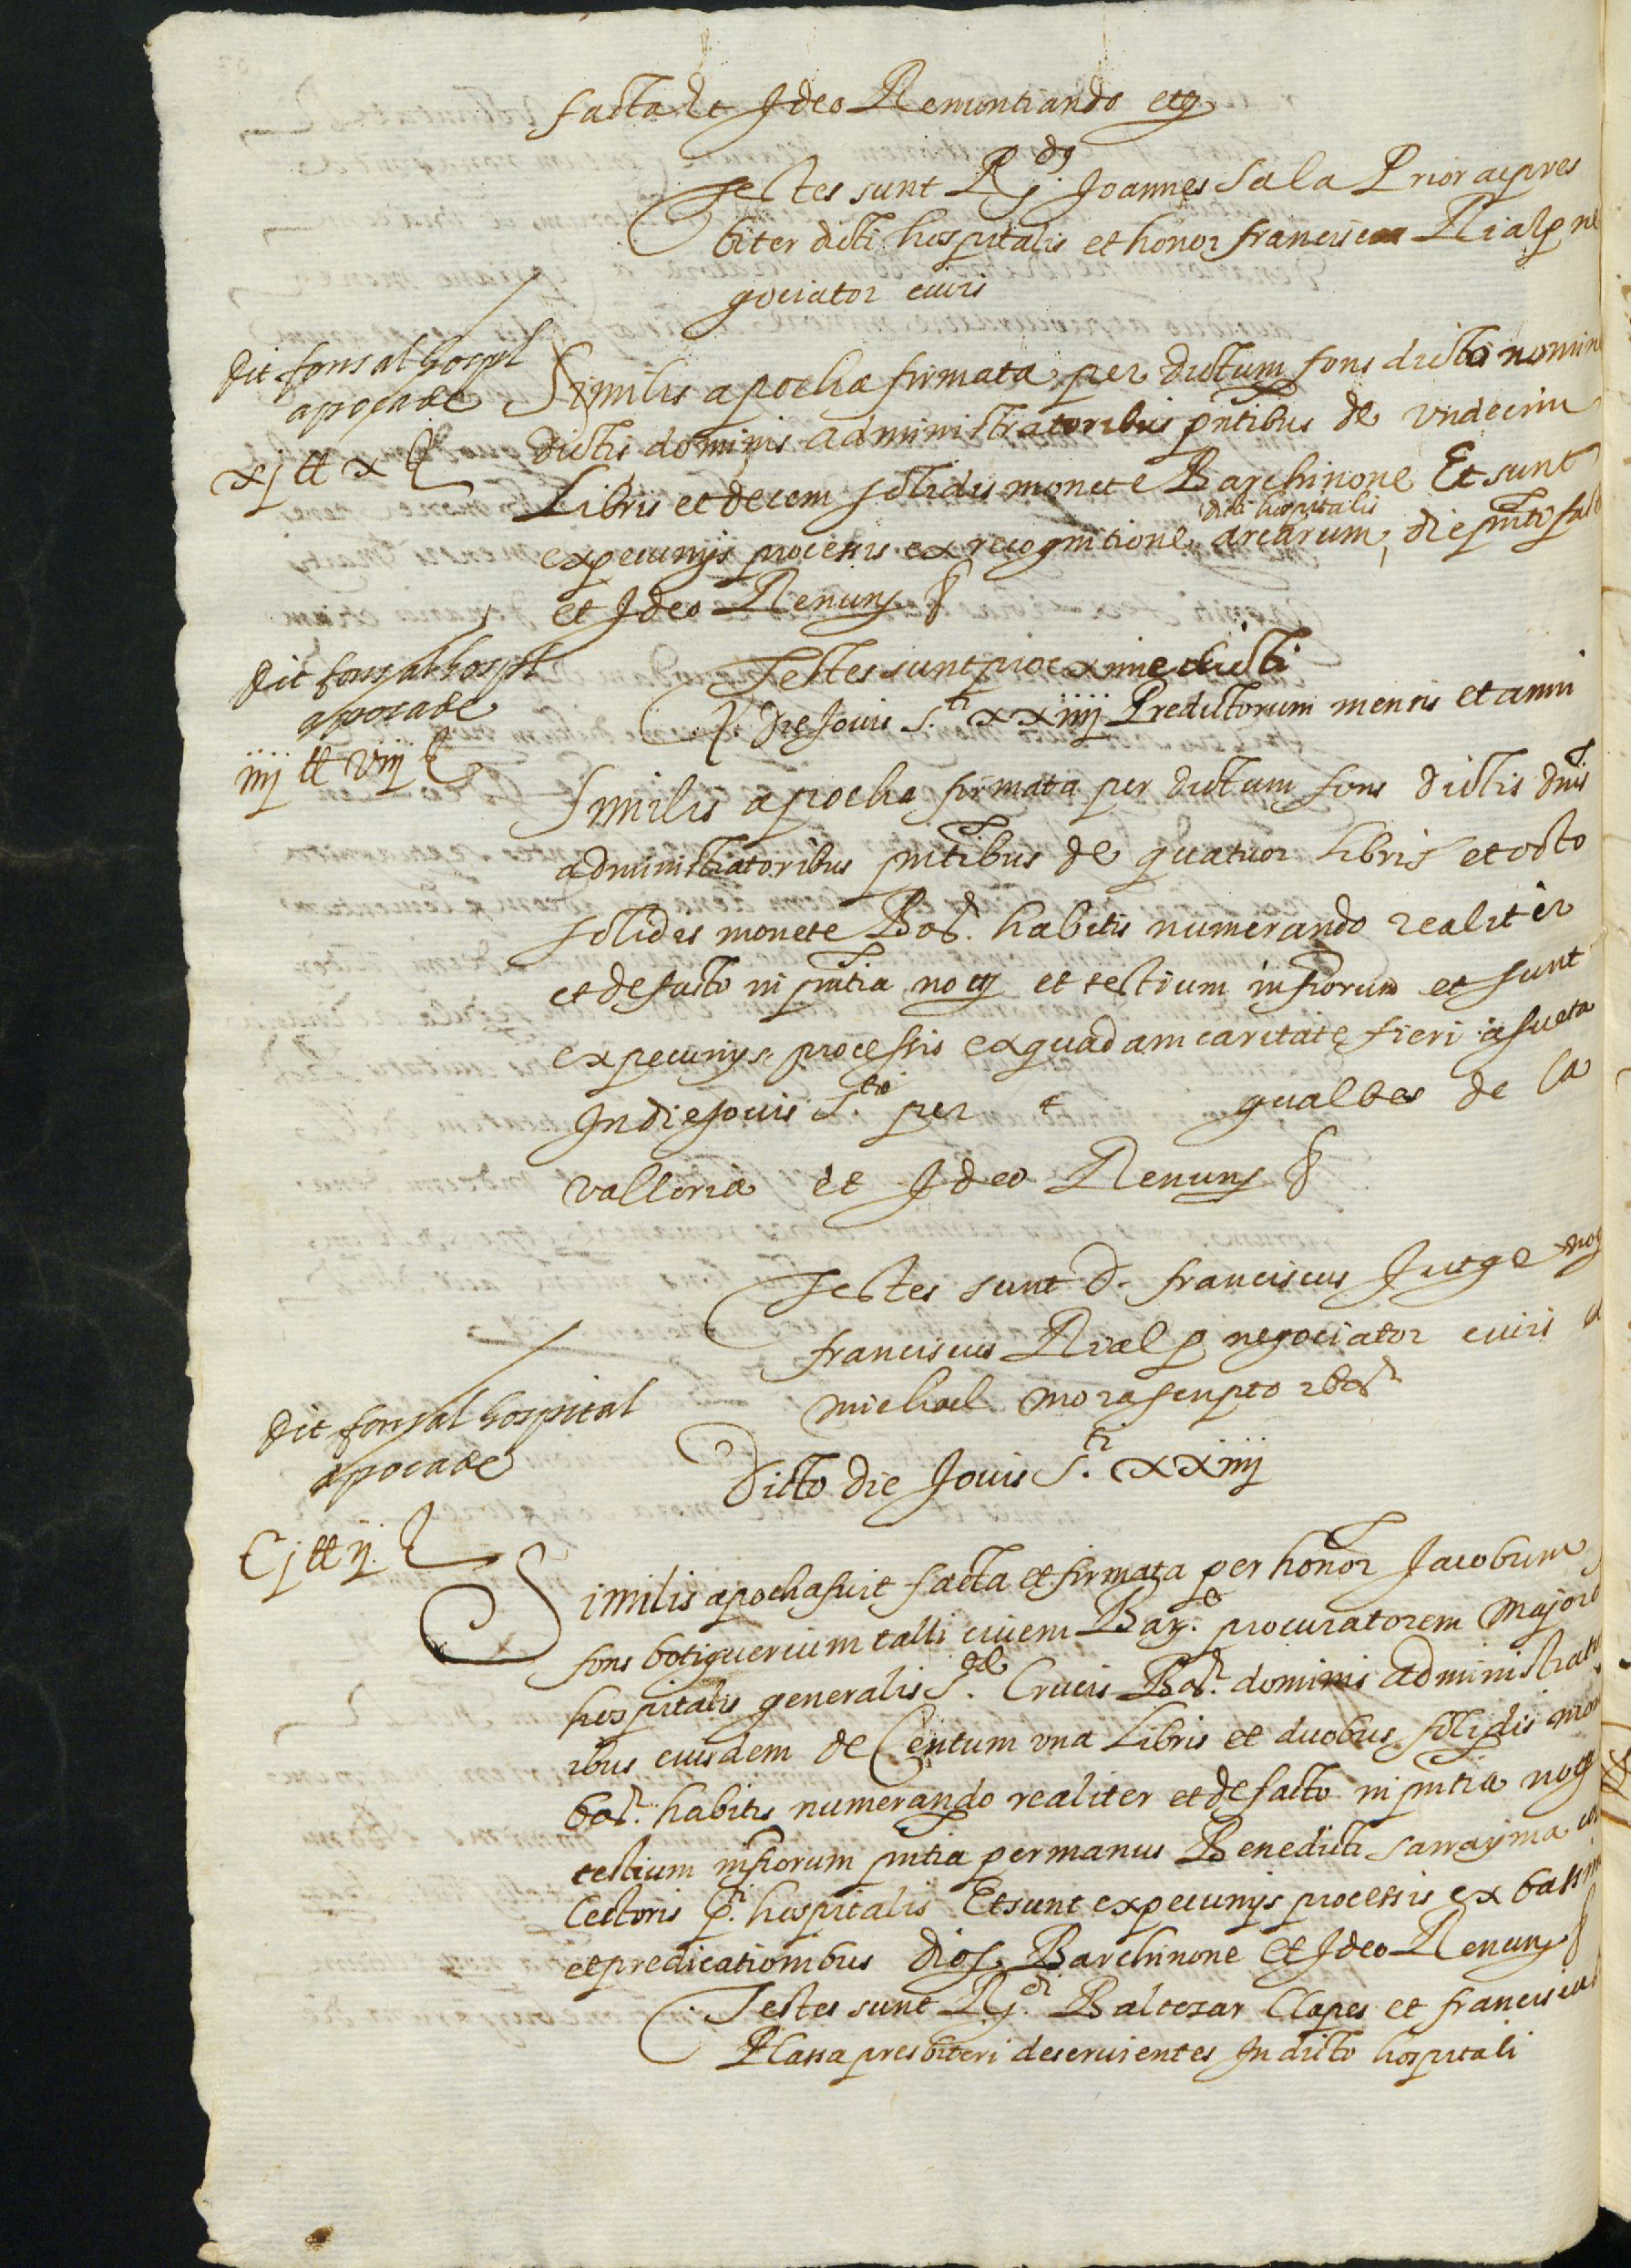 facta Et Ideo Renuntiando etc
Testes sunt R.dus Joannes Sala Prior ac pres
biter dicti hospitalis et honor franciscus Rialp ne
gociator civis
dit fons al hospl
apocade
xj ll x s
Similis apocha firmata per dictum fons dicto nomine
dictis dominis administratoribus pntibus de undecim
Libris et decem solidis monete Barchinone Et sunt
dicti hospitalis
ex pecunijs processis ex recognitione arcarum die pnti facta
et Ideo Renunj &
dit fons al hospl
apocade
iiij ll viij s
Testes sunt proxime dicti
Die Jovis S.ti xxiiij Predictorum mensis et anni
Similis apocha firmata per dictum fons dictis dnis
administratoribus pntibus de quatuor Libris et octo
solidis monete Bar. habitis numerando realiter
et de facto in pntia noty et testium infrorum et sunt
ex pecunijs processis ex quadam caritate fieri asueta
In die Jovis S.ta per gualbes de la
valloria et Ideo Renunj &
Testes sunt d. franciscus Jutge noty
franciscus Rialp negociator civis et
michael mora scriptor bar
dit fons al hospital
apocade
Cj ll ij s
Dicto die Jovis S.ti xxiiij
Similis apocha fuit facta et firmata per honor Jacobum
fons botiguerium talli civem Bar.e procuratorem majorem
hospitalis generalis S.te Crucis Bar. dominis administrator
ibus eiusdem de Centum una Libris et duobus solidis mon
bar. habitis numerando realiter et de facto in pntia noty
testium infrorum pntia per manus Benedicti sarrayma col
lectoris p.ti hospitalis Et sunt ex pecunijs processis ex bassinis
et predicationibus dios. Barchinone Et Ideo Renunj &
Testes sunt R.di Baltezar Clapes et franciscus
Plassa presbiteri deservientes In dicto hospitali